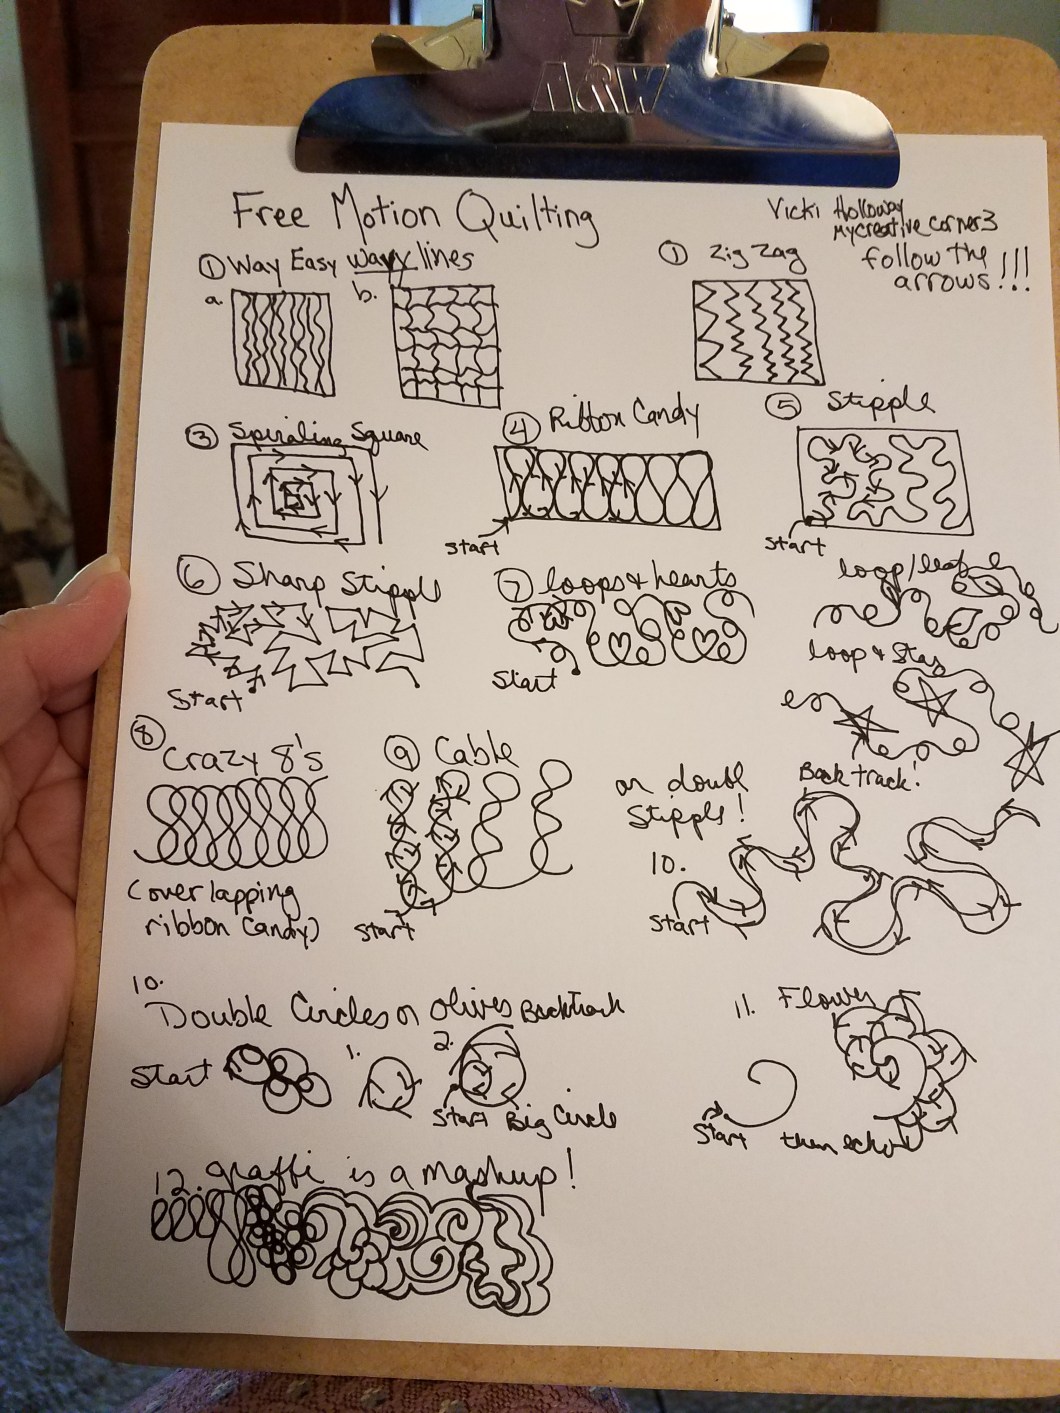 A&W
Free Motion Quilting
Vicki Holloway
Mycreative corner3
follow the
arrows!!!
① Way Easy wavy lines
a.
b.
① Zig Zag
③ Spiraling Square
④ Ribbon Candy
start
⑤ Stipple
start
⑥ Sharp Stipple
Start
⑦ loops & hearts
Start
loop/leaf
loop & star
⑧ Crazy 8's
(overlapping
ribbon candy)
⑨ Cable
Start
Back track!
or doubl
Stipple!
10.
Start
10.
Double Circles or olives Backtrack
Start
1.
2.
Start Big Circle
11. Flower
Start then echo
12. graffi is a mashup!